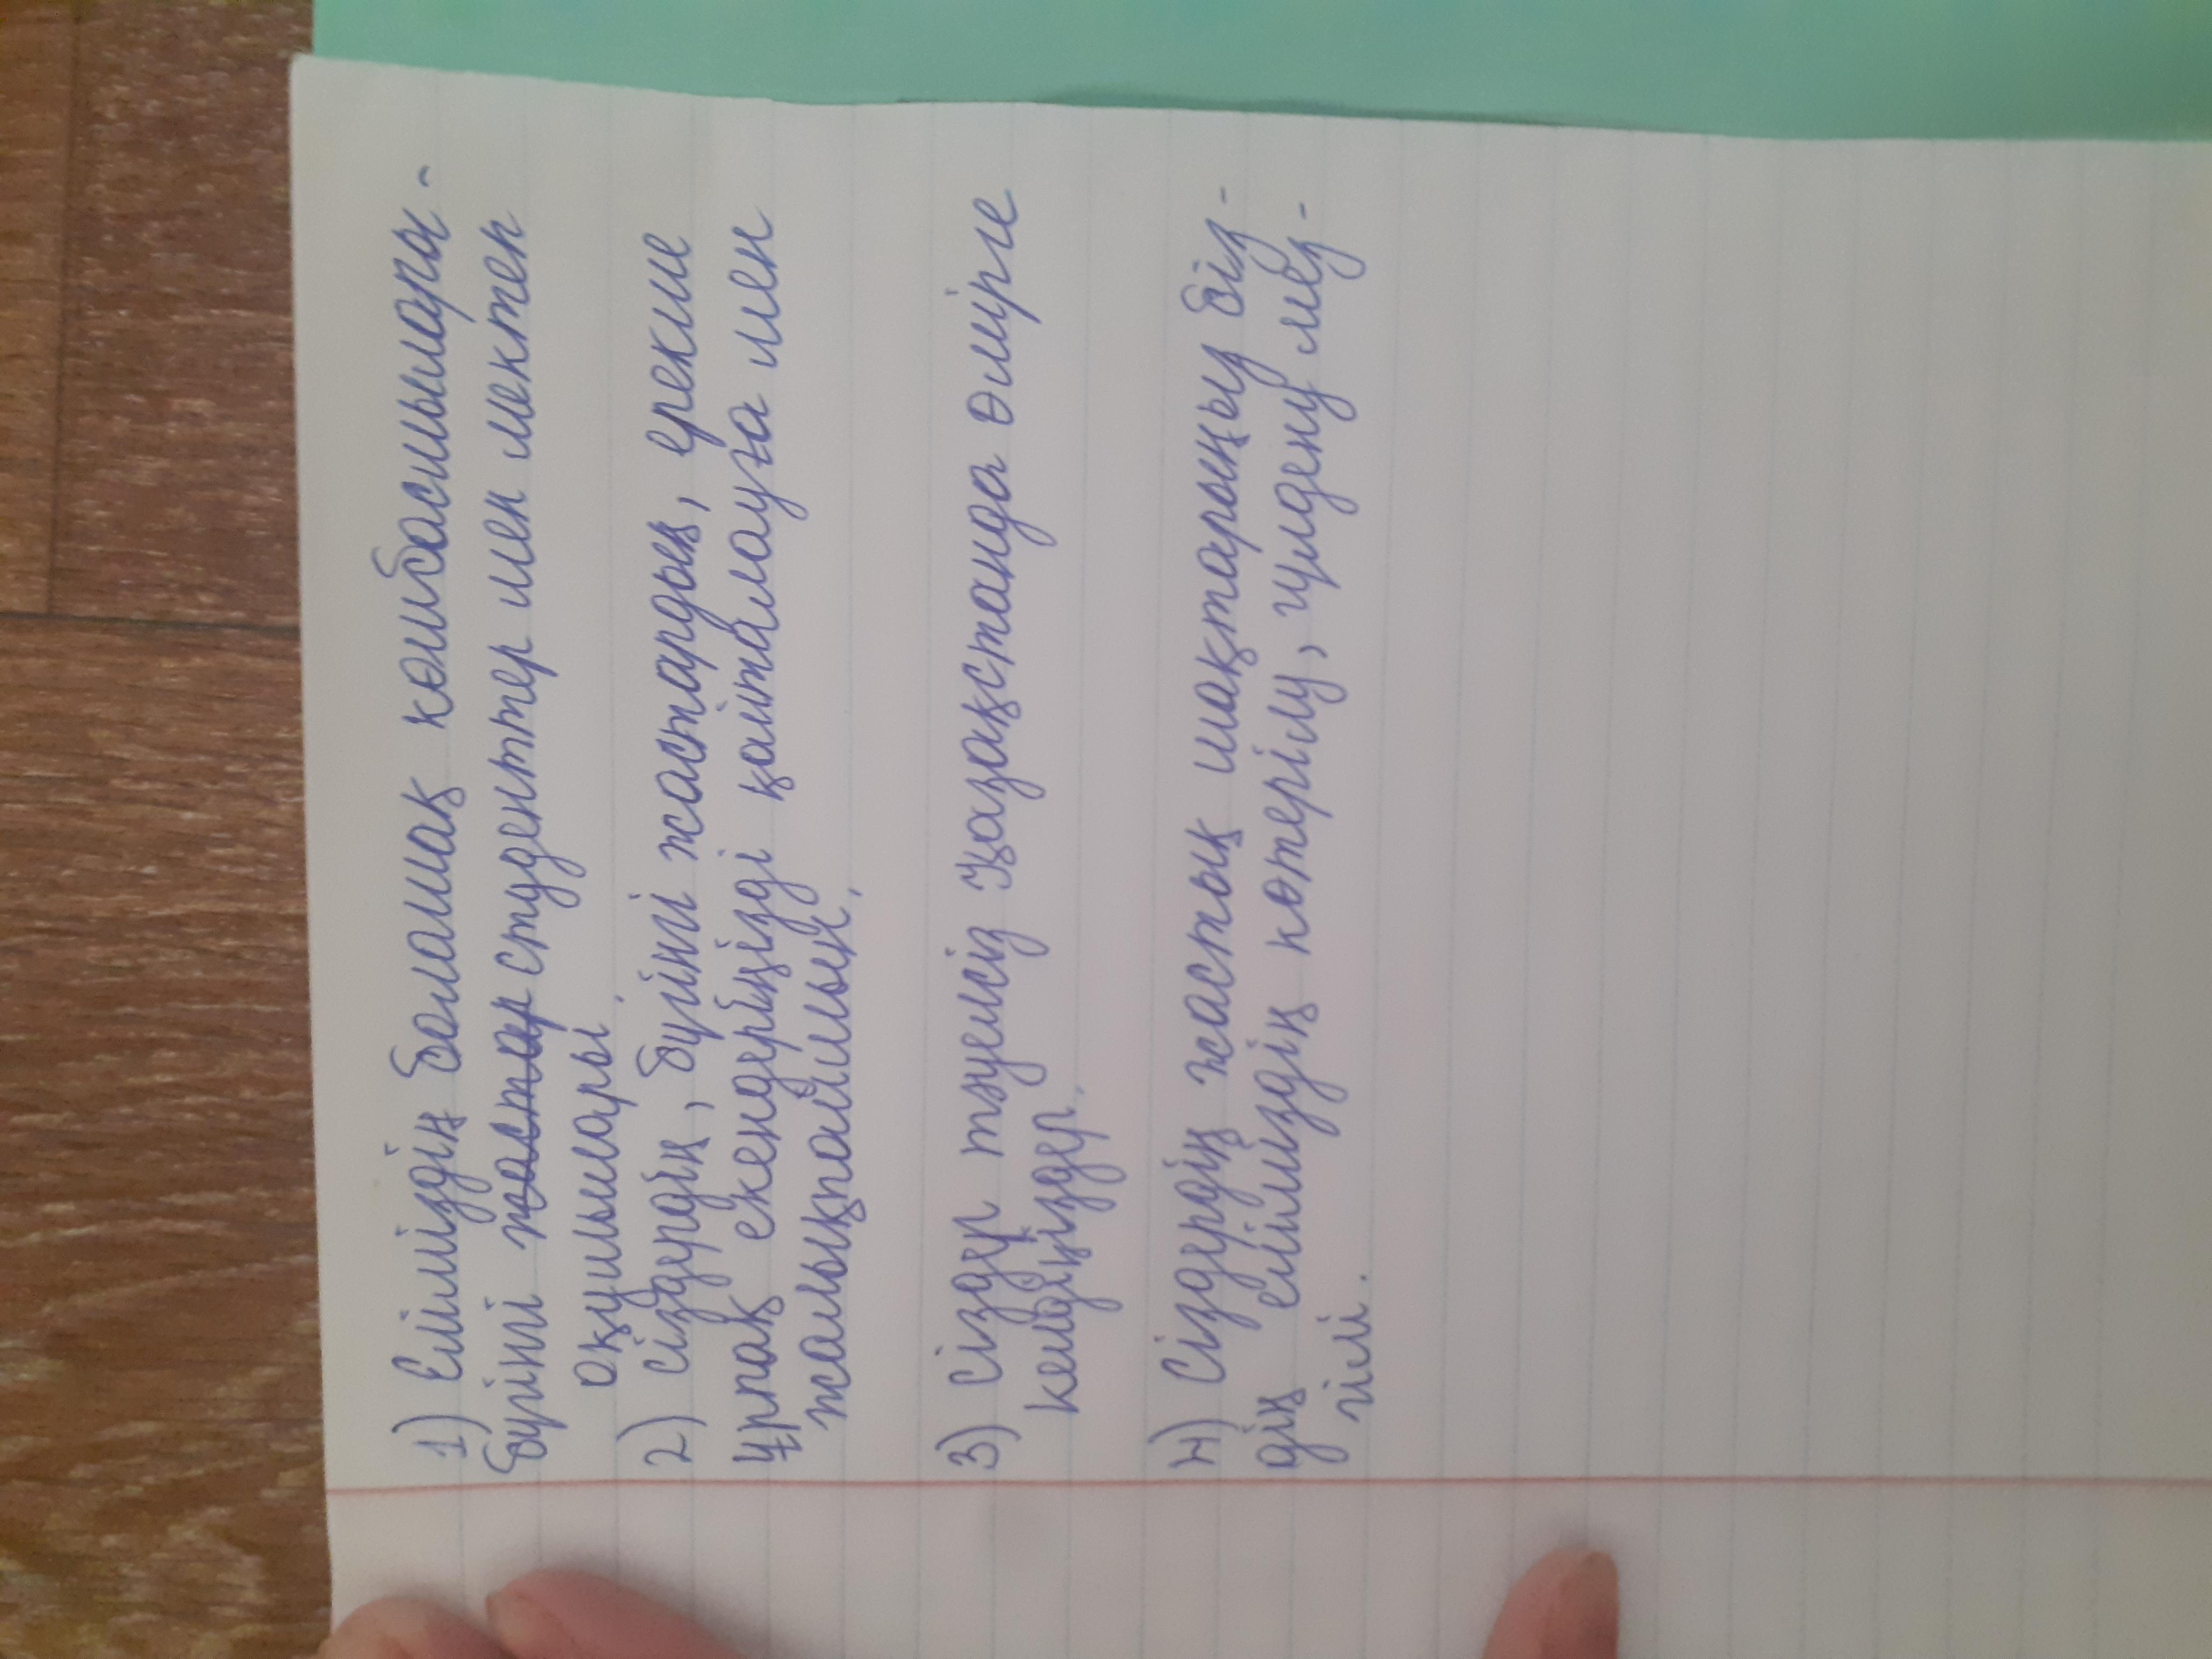 1) Еліміздің болашақ көшбасшылара-
бүгінгі жастар студенттер мен мектеп
оқушылары.
2) Сіздердің, бүгінгі жастардың, ерекше
ұрпақ екендеріңізді қайталауға мен
жалықпаймын.
3) Сіздер тәуелсіз Қазақстанда өмірге
келдіңіздер.
4) Сіздердің жастық шақтарыңыз біз-
дің еліміздің көтерілу, гүлдену мез-
гілі.